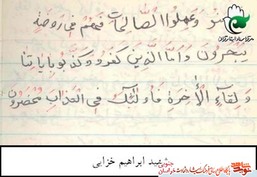 منو وَعَمِلُوا الصَّالِحَاتِ فَهُمْ فِي رَوْضَةٍ
يُحْبَرُونَ وَاَمَّا الَّذِينَ كَفَرُوا وَكَذَّبُوا بِآيَاتِنَا
وَلِقَاءِ الْآخِرَةِ فَأُولَئِكَ فِي الْعَذَابِ مُحْضَرُونَ
شهید ابراهیم خزایی